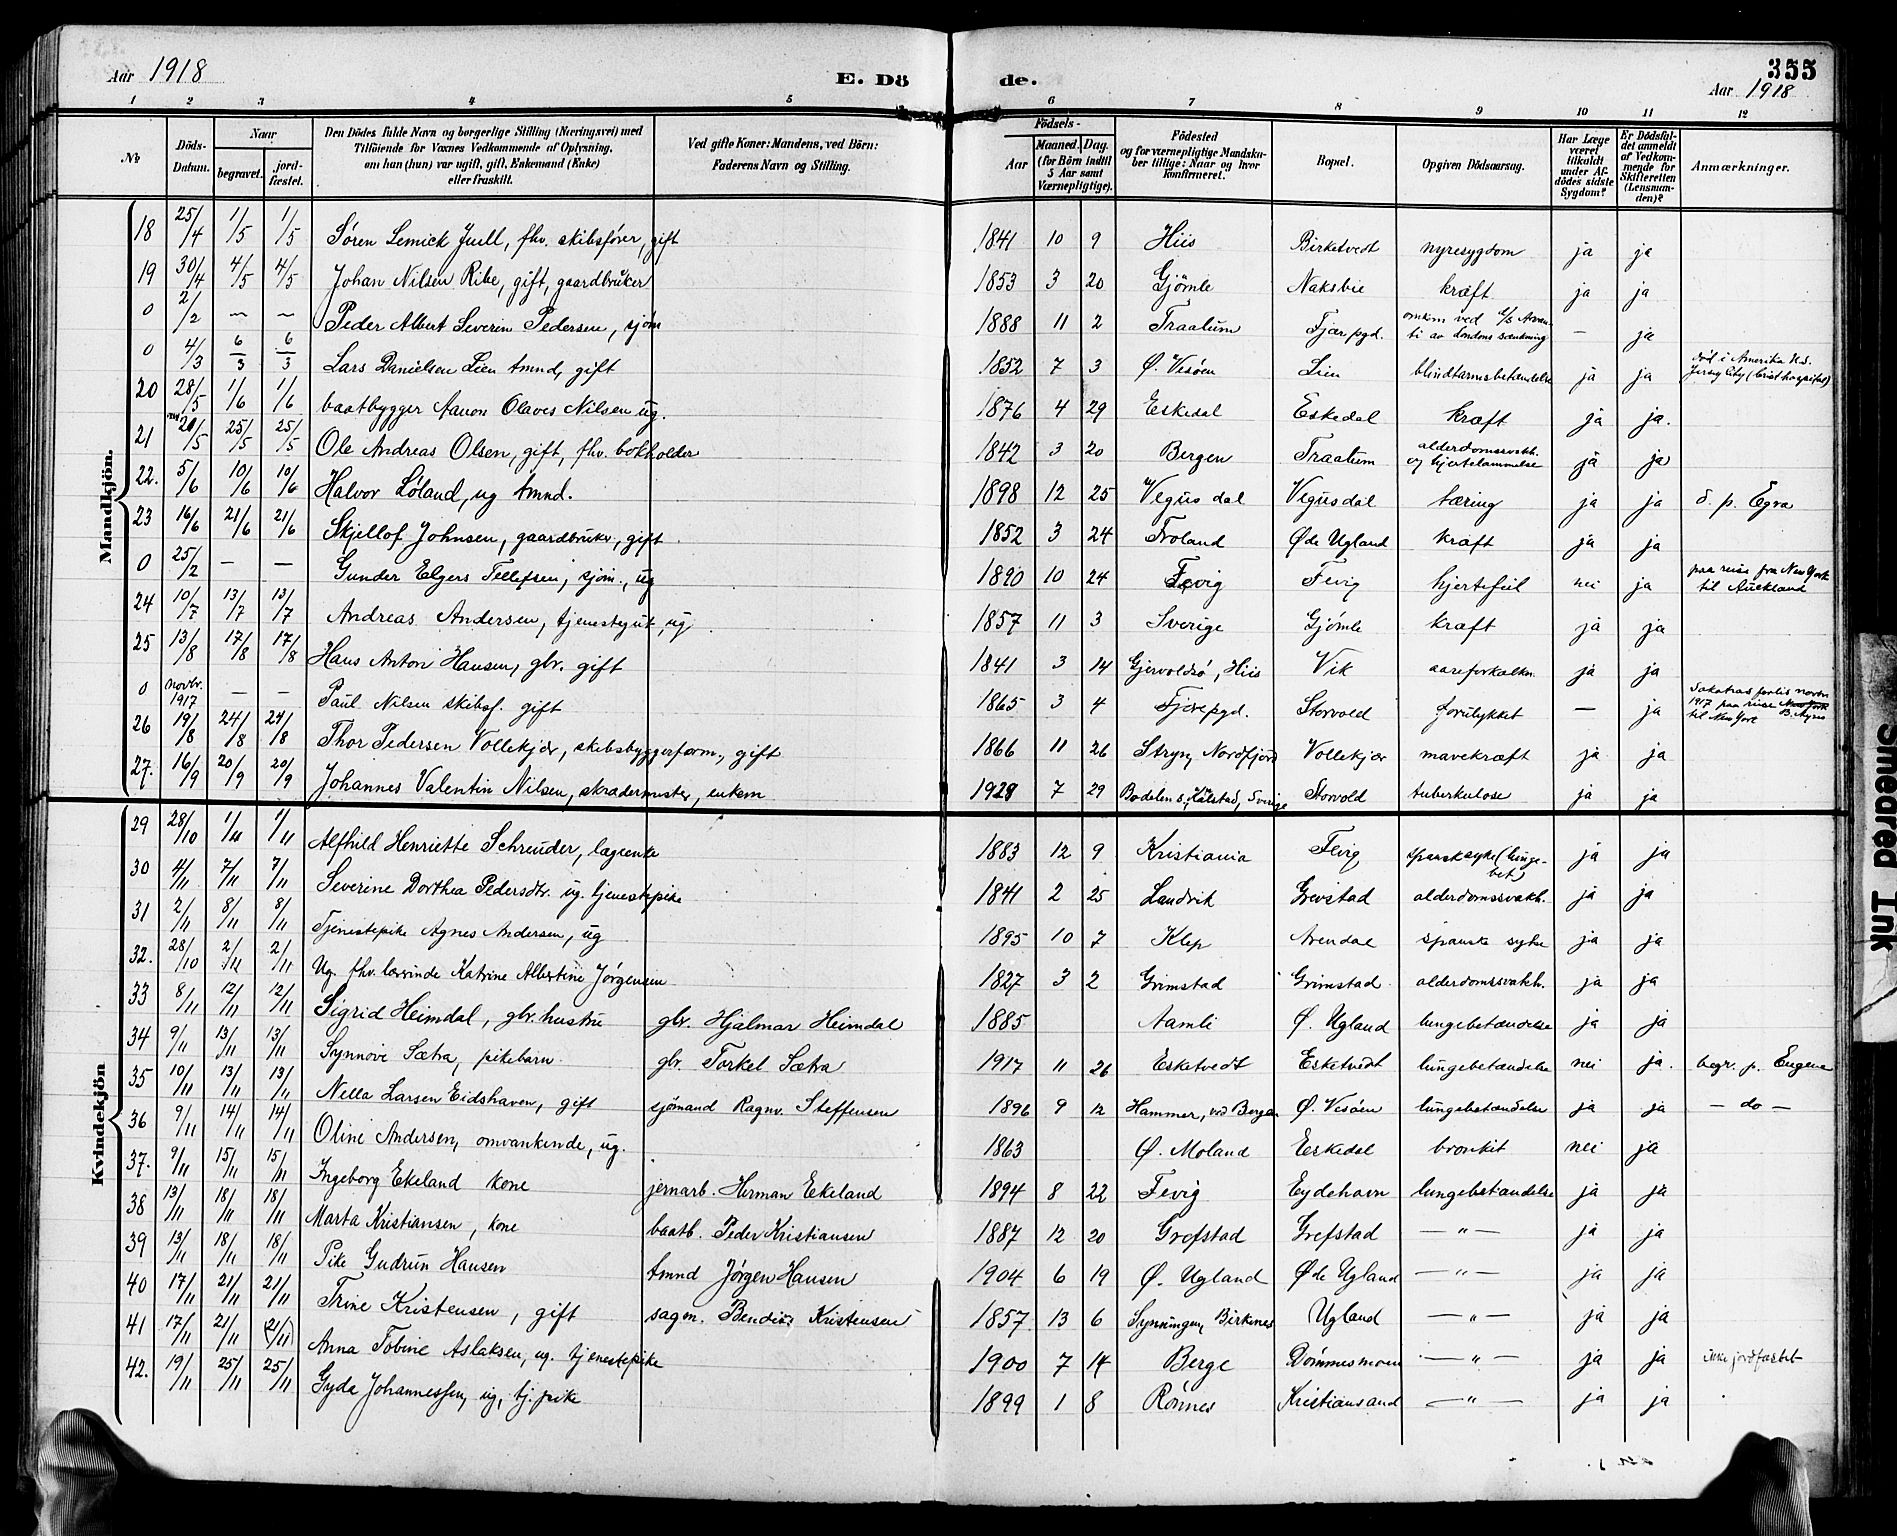 Aar 1918 E. Dö de. 355
Aar 1918
1 2 3 4 5 6 7 8 9 10 11 12
No
Döds-Datum.
Naar
begravet.
jord-fæstet.
Den Dödes fulde Navn og borgerlige Stilling (Næringsvei) med
Tilföiende for Voxnes Vedkommende af Oplysning,
om han (hun) var ugift, gift, Enkemand (Enke)
eller fraskilt.
Ved gifte Koner: Mandens, ved Börn:
Faderens Navn og Stilling.
Födsels-
Aar
Maaned. Dag.
(for Börn indtil
5 Aar samt
Værnepligtige).
Födested
og for værnepligtige Mandska-
ber tillige: Naar og hvor
konfirmeret.
Bopæl.
Opgiven Dödsaarsag.
Har Læge
været
tilkaldt
under Af-
dödes sidste
Sygdom?
Er Dödsfal-
det anmeldt
af Vedkom-
mende for
Skifteretten
(Lensman-
den)?
Anmærkninger.
Mandkjön.
18 25/4 1/5 1/5 Søren Lemick Juell, fhv. skibsfører, gift 1841 10 9 Hiis Birketvedt nyresygdom ja ja
19 30/4 4/5 4/5 Johan Nilsen Ribe, gift, gaardbruker 1853 3 20 Gjømle Naksbie kræft ja ja
0 2/2 – – Peder Albert Severin Pedersen, sjøm 1888 11 2 Traalum Fjære pgd. omkom ved ti av Londons sænkning – ja
0 4/3 6/3 6/3 Lars Danielsen Lien tmnd, gift 1852 7 3 Ø. Vesøen Lien blindtarmsbetændelse ja ja død i Amerika N.J. Jersy City (Crist hospital)
20 28/5 1/6 1/6 baatbygger Aanon Olaves Nilsen ug. 1876 4 29 Eskedal Eskedal kræft ja ja.
21 20/5 25/5 25/5 Ole Andreas Olsen, gift, fhv. bokholder 1842 3 20 Bergen Traalum alderdomssvakh. og hjertelammelse ja ja
22. 5/6 10/6 10/6 Halvor Løland, ug tmnd. 1898 12 25 Vegusdal Vegusdal tæring ja ja d. p. Egra
23 16/6 21/6 21/6 Skjellof Johnsen, gaardbruker, gift 1852 3 24 Froland Øde Ugland kræft ja ja
0 25/2 – – Gunder Elgers Tellefsen, sjøm., ug 1890 10 24 Fevig Fevig hjertefeil nei ja paa reise fra New York til Auckland
24 10/7 13/7 13/7 Andreas Andersen, tjenestegut, ug 1857 11 3 Sverige Gjømle kræft ja ja
25 13/8 17/8 17/8 Hans Anton Hansen, gbr. gift 1841 3 14 Gjervoldsø, Hiis Vik aareforkalkn. ja ja
0 novbr. 1917 – – Paul Nilsen skibsf. gift 1865 3 4 Fjære pgd. Storvold forulykket – ja forlis novbr 1917 paa reise New York B. Ayres til New York
26 19/8 24/8 24/8 Thor Pedersen Vollekjær, skibsbyggerform., gift 1866 11 26 Stryn, Nordfjord Vollekjær mavekræft ja ja
27. 16/9 20/9 20/9 Johannes Valentin Nilsen, skrædermester, enkem 1928 7 29 Bodelens, Halstad, Sverige Storvold tuberkulose ja ja
Kvindekjön
29 28/10 1/11 1/11 Alfhild Henriette Schreuder, lægeenke 1883 12 9 Kristiania Fevig spansk syke (lunge-bet) ja ja
30 4/11 7/11 7/11 Severine Dorthea Pedersdtr. ug. tjenestepike 1841 2 25 Landvik Grevstad alderdomssvakh. ja ja
31 2/11 8/11 8/11 Tjenestepike Agnes Andersen, ug 1895 10 7 Klep Arendal spanske syke ja ja
32. 28/10 2/11 2/11 Ug. fhv. lærerinde Katrine Albertine Jørgensen 1827 3 2 Grimstad Grimstad alderdomssvakh. ja ja
33 8/11 12/11 12/11 Sigrid Heimdal, gbr. hustru gbr. Hjalmar Heimdal 1885 Aamli Ø. Ugland lungebetændelse ja ja
34 9/11 13/11 13/11 Synnøve Sætra, pikebarn gbr. Torkel Sætra 1917 11 26 Esketvedt Esketvedt lungebetændelse nei ja. begr. p. Eugene
35 10/11 13/11 13/11 Nella Larsen Eidshaven, gift sjømand Ragnv. Steffensen 1896 9 12 Hammer, ved Bergen Ø. Vesøen lungebetændelse ja ja – do –
36 9/11 14/11 14/11 Oline Andersen, omvankende, ug. 1863 Ø. Moland Eskedal bronkit nei ja
37. 9/11 15/11 15/11 Ingeborg Ekeland kone jernarb. Herman Ekeland 1894 8 22 Fevig Eydehavn lungebetændelse ja ja
38 13/11 18/11 18/11 Marta Kristiansen, kone baatb. Peder Kristiansen 1887 12 20 Grefstad Grefstad – " – ja ja
39 13/11 18/11 18/11 Pike Gudrun Hansen tmnd Jørgen Hansen 1904 6 19 Ø. Ugland Øde Ugland – " – ja ja
40 17/11 21/11 21/11 Trine Kristensen, gift sagm. Bendix Kristensen 1857 13 6 Synningen, Birkenes Ugland – " – ja ja
41 17/11 21/11 (21/11) Anna Tobine Aslaksen, ug. tjenestepike 1900 7 14 Berge Dømmesmoen – " – ja ja ikke jordfæstet
42. 19/11 25/11 25/11 Gyda Johannessen, ug, tj. pike 1899 1 8 Rønnes Kristiansand – " – ja ja
Smeared Ink